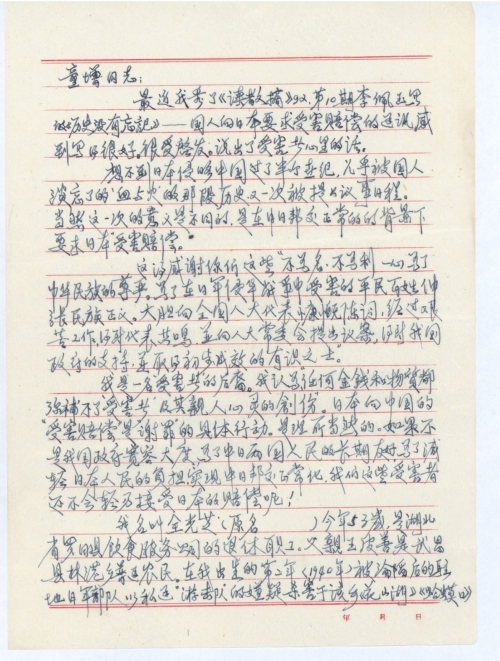 童增同志:
最近我看了《读者文摘》92.第10期李佩玉写
的《历史没有忘记》——国人向日本要求受害赔偿的通讯,感
到写的很好。很受启发。说出了受害者心里的话。
想不到日本侵略中国过了半个世纪,几乎被国人
淡忘了的"血与火"的那段历史又一次被提上议事日程。
当然这一次的意义是不同的,是在中日邦交正常的的背景下
要求日本"受害赔偿"。
这得感谢你们这些"不为名、不为利一心为了
中华民族的尊严。为了在日军侵华战争中受害的平民百姓伸
张民族正义。大胆向全国人大代表 陈词,经过艰
苦工作得到代表共鸣,并向人大常委会提出议案,得到我国
政府的支持,并取得初步成效的有识之士"。
我是一名受害者的后裔。我认为任何金钱和物质都
弥补不了"受害者"及其亲人心灵的创伤。日本向中国的
"受害赔偿"是谢罪的具体行动。是理所当然的。如果不
是我国政府宽容大度,为了中日两国人民的长期友好,为了减
轻日本人民的负担实现中日邦交正常化,我们这些受害者
还不会轻易接受日本的赔偿呢!
我名叫 (原名 )今年53岁,是湖北
省 县饮食服务公司的退休职工。父亲 是武昌
县 乡 农民。在我出生的第二年(1940年)被沦陷后的驻
地日军部队以私通"游击队的嫌疑杀害于该乡花山湖》《蛤蟆
年 月 日